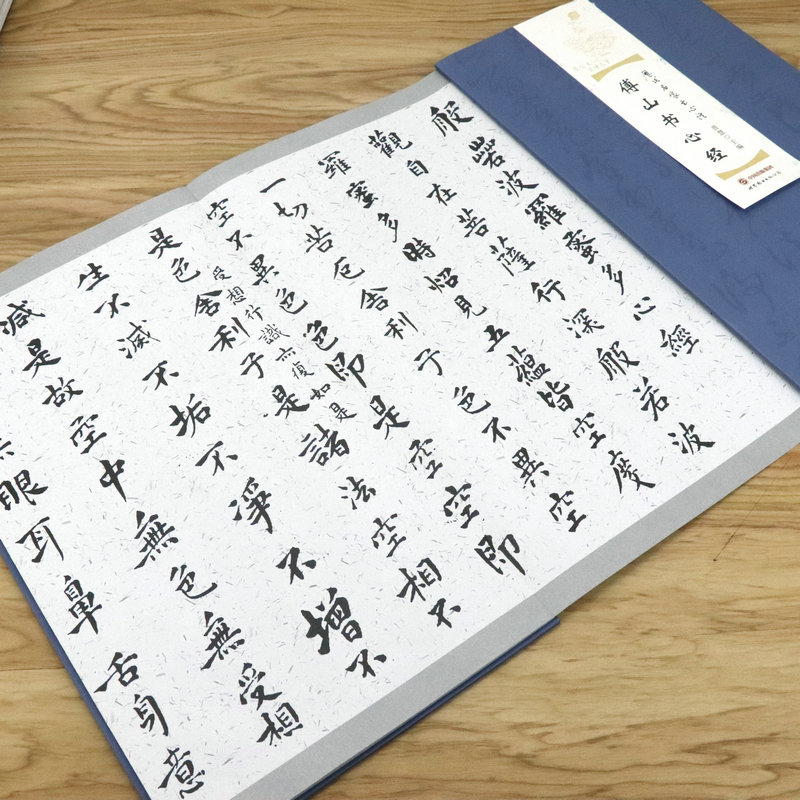 般若波羅蜜多心經
觀自在菩薩行深般若波
羅蜜多時照見五蘊皆空度
一切苦厄舍利子色不異空
空不異色色即是空空即
是色舍利子是諸法空相不
受想行識亦復如是
生不滅不垢不淨不增不
減是故空中無色無受相
眼耳鼻舌身意
傅山书心经